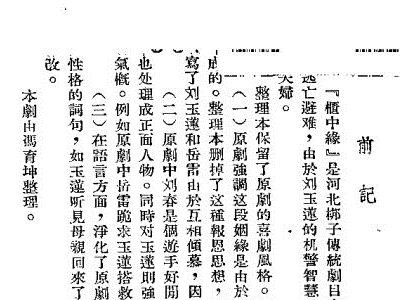 前記
『櫃中緣』是河北梆子傳統劇目
逃亡避难，由於刘玉蓮的机警智慧
夫婦。
整理本保留了原劇的喜劇風格。
（一）原劇強調这段姻緣是由於
成的。整理本删掉了这種報恩思想，
寫了刘玉蓮和岳雷由於互相傾慕，因
（二）原劇中刘春是個遊手好閒
也处理成正面人物。同時对玉蓮則強
氣概。例如原劇中岳雷跪求玉蓮搭救
（三）在語言方面，淨化了原劇
性格的詞句，如玉蓮听見母親回來了
改。
本劇由馮育坤整理。